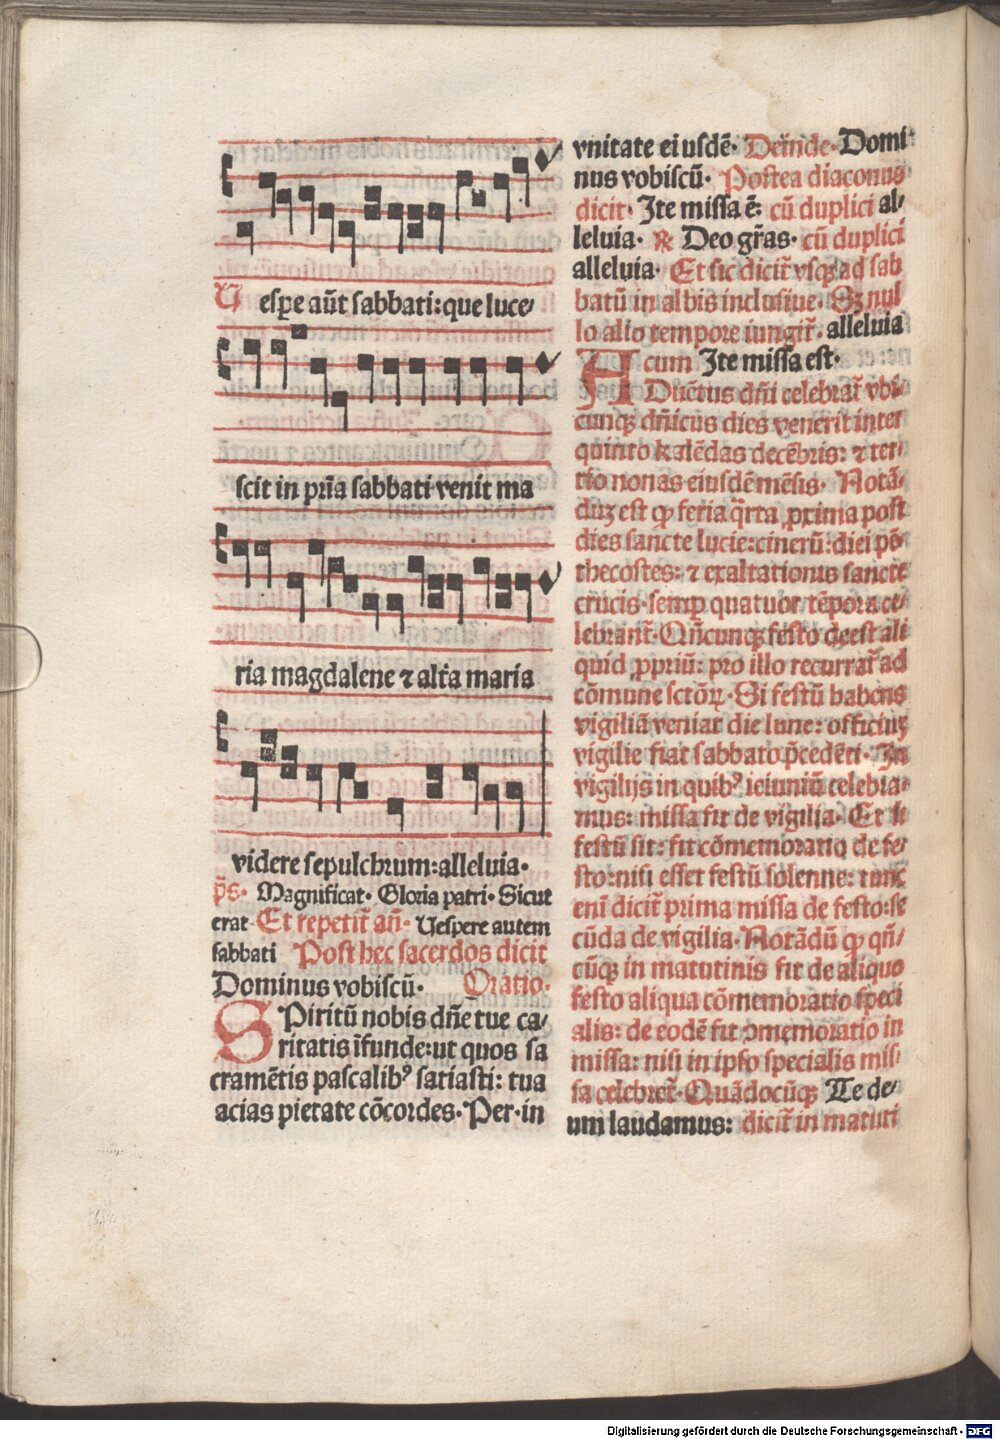 Uespe aūt sabbati: que luce
scit in pria sabbati venit ma
ria magdalene ⁊ alta maria
videre sepulchrum: alleluia.
ps. Magnificat. Gloria patri. Sicut
erat. Et repetit an. Uespere autem
sabbati Post hec sacerdos dicit
Dominus vobiscū. Oratio.
Spiritū nobis dñe tue ca/
ritatis ifunde: ut quos sa
cramētis pascalibꝰ satiasti: tua
acias pietate cōcordes. Per. in
vnitate eiusdē. Deinde. Domi
nus vobiscū. Postea diaconus
dicit. Ite missa ē: cū duplici al/
leluia. ℟ Deo gras. cū duplici
alleluia. Et sic dicit vsqꝫ ad sab
batū in albis inclusiue. Sꝫ nul
lo alio tempore iungit. alleluia
cum Ite missa est.
Aductus dñi celebrat vbi
cunqꝫ dñicus dies venerit inter
quinto kalēdas decēbris: ⁊ ter/
tio nonas eiusdē mēsis. Notā/
duꝫ est ꝙ feria qrta prima post
dies sancte lucie: cinerū: diei pē
thecostes: ⁊ exaltationis sancte
crucis. semp quatuor tēpora ce/
lebrant. Qñcunqꝫ festo deest ali
quid ppriū: pro illo recurrat ad
cōmune sctōꝝ. Si festū habens
vigiliā veniat die lune: officiuꝫ
vigilie fiat sabbato pcedēti. In
vigilijs in quibꝰ ieiuniū celebra/
mus: missa fit de vigilia. Et si
festū sit: fit cōmemoratio de fe/
sto: nisi esset festū solenne: tunc
eni dicit prima missa de festo: se
cūda de vigilia. Notādū ꝙ qñ/
cūqꝫ in matutinis fit de aliquo
festo aliqua cōmemoratio speci
alis: de eodē fit ꝯmemoratio in
missa: nisi in ipso specialis mis/
sa celebret. Quādocūqꝫ Te de/
um laudamus: dicit in matuti
Digitalisierung gefördert durch die Deutsche Forschungsgemeinschaft - DFG